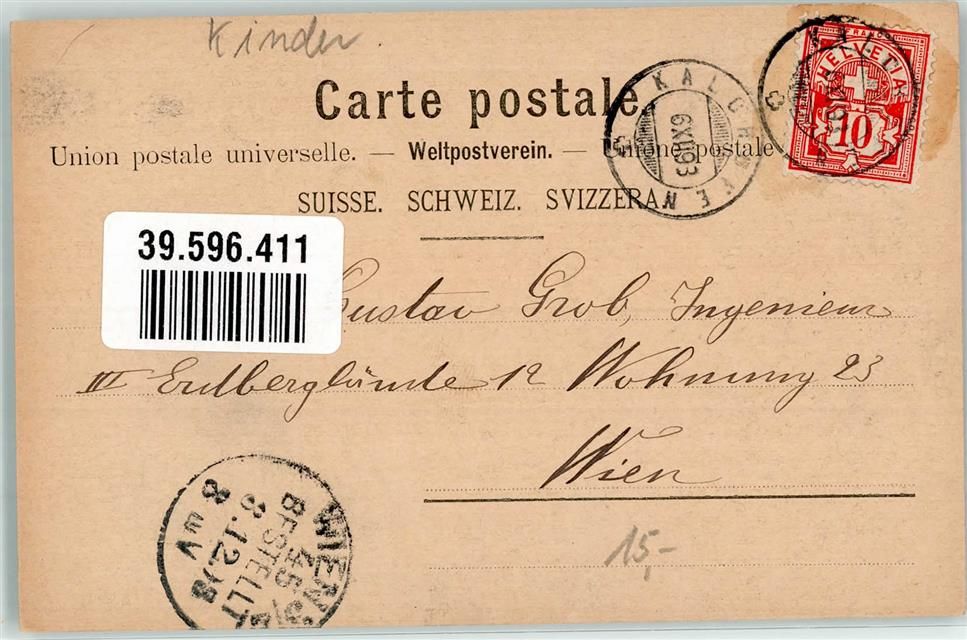 Kinder
Carte postale.
Union postale universelle. — Weltpostverein. — Unione postale
SUISSE. SCHWEIZ. SVIZZERA
KALTBRUNNEN
HELVETIA
10
39.596.411
Gustav Grob, Ingenieur
III Erdberglände 12 Wohnung 23
Wien
15,-
WIEN
BESTELLT